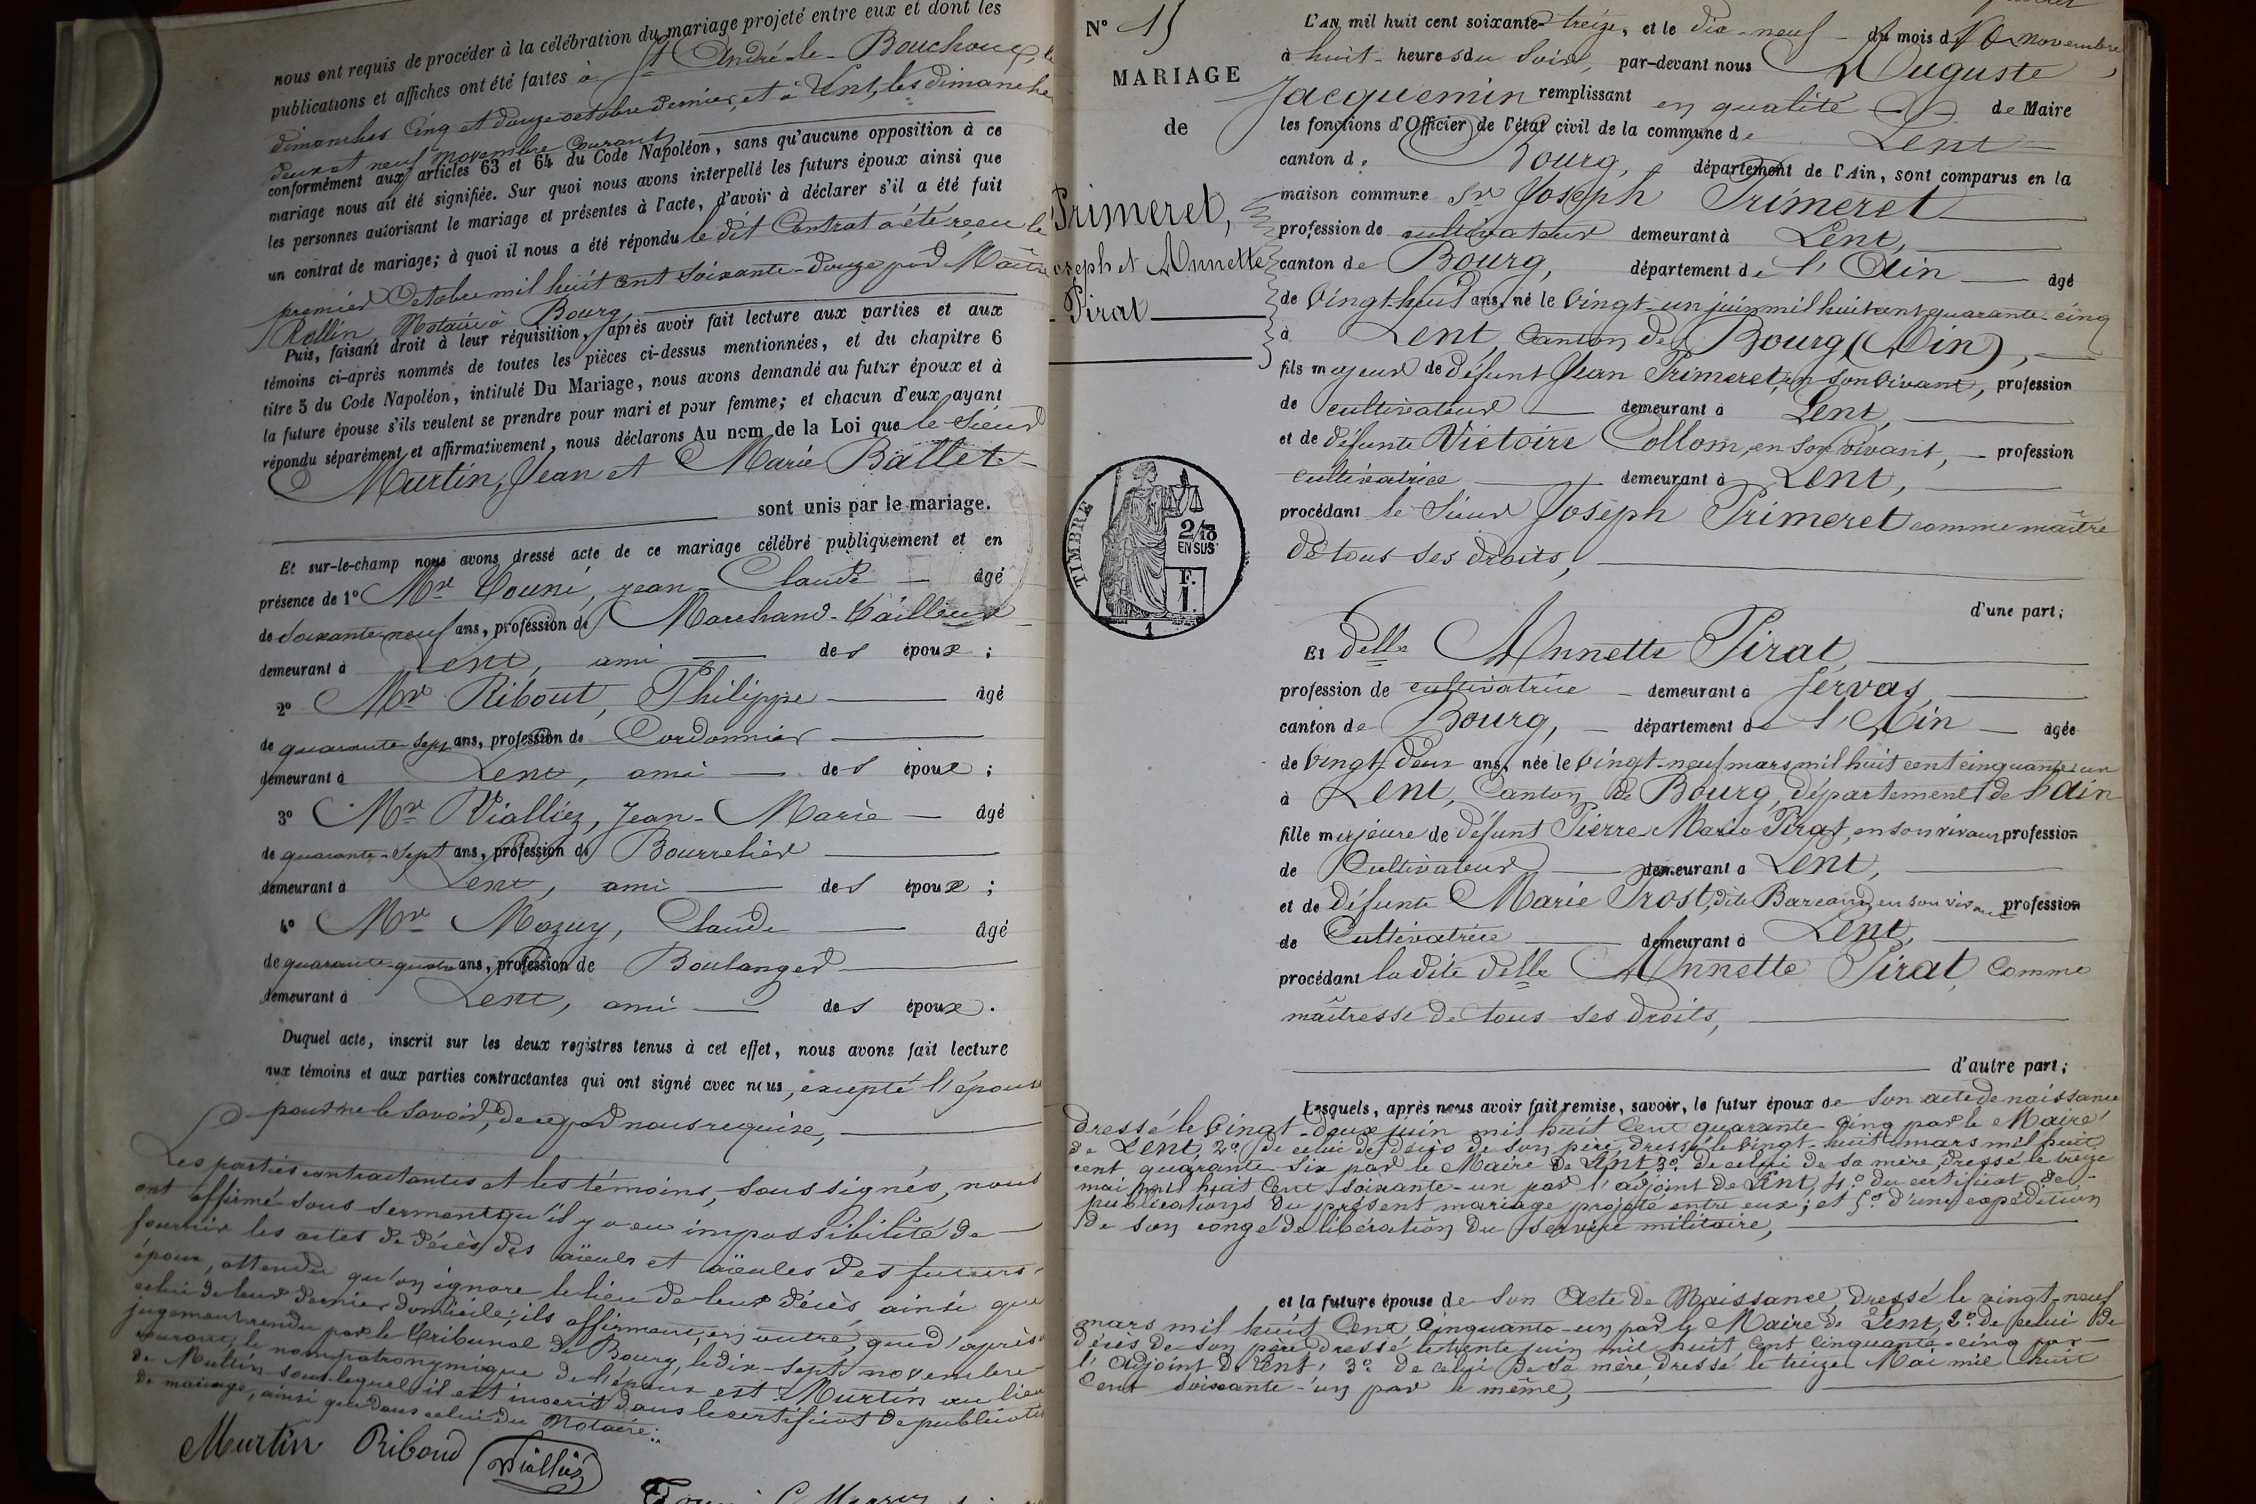 nous ont requis de procéder à la célébration du mariage projeté entre eux et dont les
publications et affiches ont été faites à St André-le-Bouchoux, les
dimanches cinq et douze octobre dernier, et à Lent, les dimanches
deux et neuf novembre courant
conformément aux articles 63 et 64 du Code Napoléon, sans qu'aucune opposition à ce
mariage nous ait été signifiée. Sur quoi nous avons interpellé les futurs époux ainsi que
les personnes autorisant le mariage et présentes à l'acte, d'avoir à déclarer s'il a été fait
un contrat de mariage; à quoi il nous a été répondu le dit Contrat a été reçu le
premier Octobre mil huit cent soixante-douze par Maître
Rollin, Notaire à Bourg,
Puis, faisant droit à leur réquisition, après avoir fait lecture aux parties et aux
témoins ci-après nommés de toutes les pièces ci-dessus mentionnées, et du chapitre 6
titre 5 du Code Napoléon, intitulé Du Mariage, nous avons demandé au futur époux et à
la future épouse s'ils veulent se prendre pour mari et pour femme; et chacun d'eux ayant
répondu séparément et affirmativement, nous déclarons Au nom de la Loi que le sieur
Murtin, Jean et Marie Ballet
sont unis par le mariage.
Et sur-le-champ nous avons dressé acte de ce mariage célébré publiquement et en
présence de 1° Mr Touni, Jean-Claude âgé
de soixante neuf ans, profession de Marchand-Tailleur
demeurant à Lent, ami des époux;
2° Mr Ribout, Philippe âgé
de quarante-sept ans, profession de Cordonnier
demeurant à Lent, ami des époux;
3° Mr Vialliez, Jean-Marie âgé
de quarante-sept ans, profession de Bourrelier
demeurant à Lent, ami des époux;
4° Mr Mozuy, Claude âgé
de quarante-quatre ans, profession de Boulanger
demeurant à Lent, ami des époux.
Duquel acte, inscrit sur les deux registres tenus à cet effet, nous avons fait lecture
aux témoins et aux parties contractantes qui ont signé avec nous, excepté l'épouse
pour ne le savoir, de ce par nous requise,
Les parties contractantes et les témoins, soussignés, nous
ont affirmé sous serment qu'il y a eu impossibilité de
fournir les actes de décès des aïeuls et aïeules des futurs
époux, attendu qu'on ignore le lieu de leur décès, ainsi que
celui de leur dernier domicile; ils affirment, en outre, que d'après
jugement rendu par le Tribunal de Bourg, le dix-sept novembre
courant, le nom patronymique de l'époux est Murtin au lieu
de Multin sous lequel il est inscrit dans le certificat de publication
de mariage, ainsi que dans celui du Notaire.
Murtin Riboud Vialliez
N° 15
MARIAGE
de
Primeret,
Joseph et Annette
Pirat
TIMBRE
2/10
EN SUS
F.
1.
1
L'AN mil huit cent soixante-treize, et le dix-neuf du mois de Novembre,
à huit heures du soir, par-devant nous Auguste
Jacquemin remplissant en qualité de Maire
les fonctions d'Officier de l'état civil de la commune de Lent
canton de Bourg, département de l'Ain, sont comparus en la
maison commune Sr Joseph Primeret
profession de cultivateur demeurant à Lent,
canton de Bourg, département de l'Ain âgé
de vingt-huit ans, né le vingt-un juin mil huit cent quarante-cinq
à Lent, Canton de Bourg (Ain),
fils majeur de défunt Jean Primeret, en son vivant, profession
de cultivateur demeurant à Lent,
et de défunte Victoire Collom, en son vivant, profession
cultivatrice demeurant à Lent,
procédant le sieur Joseph Primeret comme maître
de tous ses droits,
d'une part;
Et delle Annette Pirat,
profession de cultivatrice demeurant à Servas,
canton de Bourg, département de l'Ain agée
de vingt-deux ans, née le vingt-neuf mars mil huit cent cinquante-un
à Lent, Canton de Bourg, département de l'Ain
fille majeure de défunt Pierre Marie Pirat, en son vivant profession
de Cultivateur demeurant à Lent,
et de défunte Marie Prost, dite en son vivant profession
de Cultivatrice demeurant à Lent,
procédant la dite delle Annette Pirat, comme
maîtresse de tous ses droits,
d'autre part;
Lesquels, après nous avoir fait remise, savoir, le futur époux de son acte de naissance
dressé le vingt-deux juin mil huit cent quarante-cinq par le Maire
de Lent, 2° de celui de décès de son père, dressé le vingt-huit mars mil huit
cent quarante-six par le Maire de Lent, 3° de celui de sa mère, dressé le treize
mai mil huit cent soixante-un par l'adjoint de Lent, 4° du certificat de
publications du présent mariage projeté entre eux; et 5° d'une expédition
de son congé de libération du service militaire,
et la future épouse de son Acte de Naissance, dressé le vingt-neuf
mars mil huit cent cinquante-un par le Maire de Lent, 2° de celui de
décès de son père dressé le trente juin mil huit cent cinquante-cinq par
l'Adjoint de Lent, 3° de celui de sa mère, dressé le treize Mai mil huit
cent soixante-un par le même,